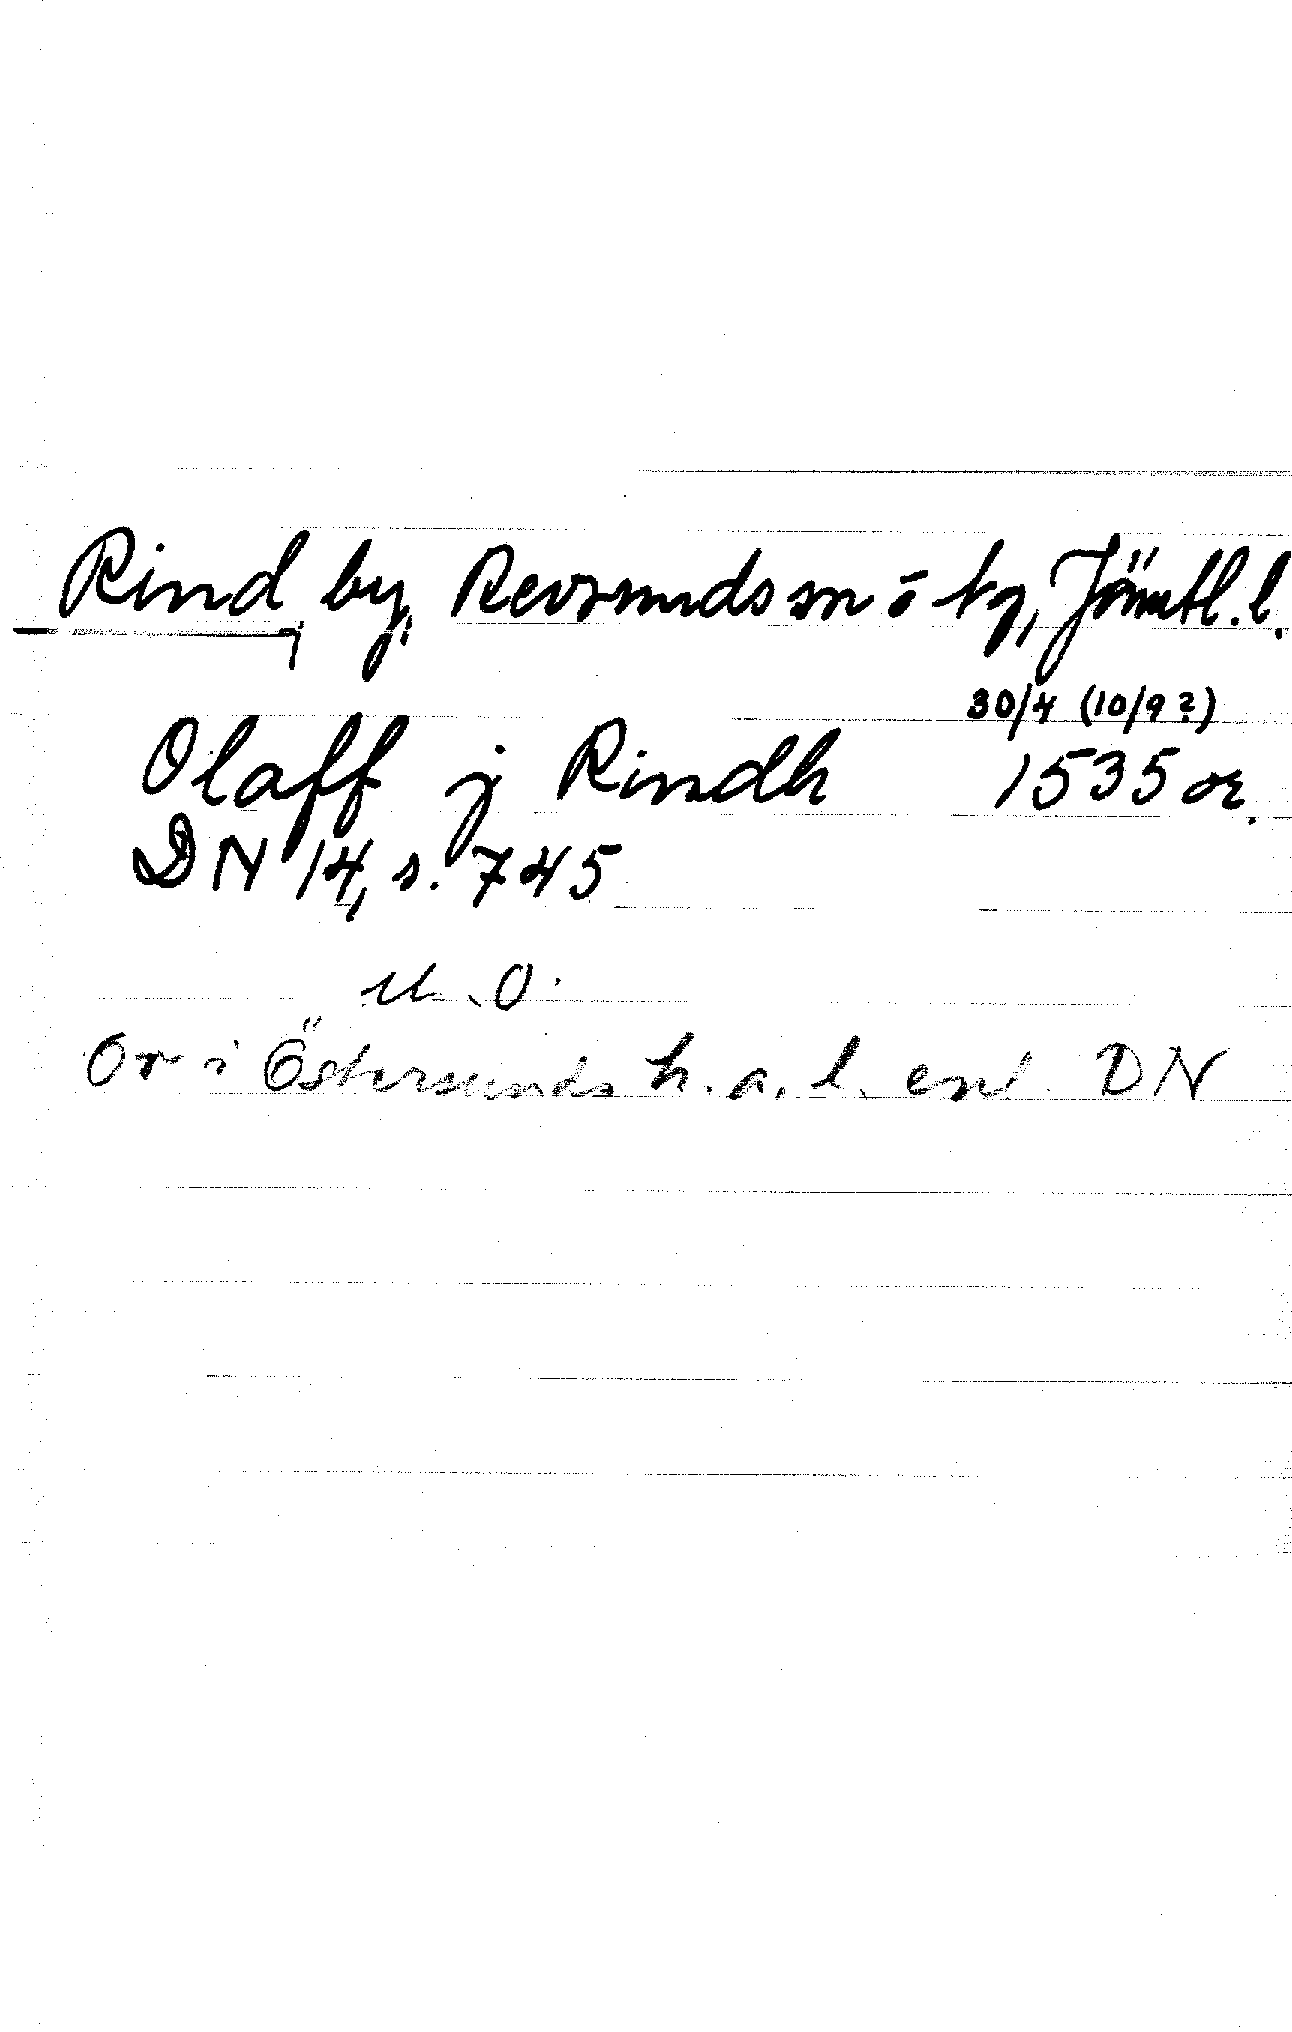 Rind, by, Revsunds sn o tg, Jämtl. l.
30/4 (10/9?)
Olaff j Rindh 1535 or.
DN 14, s. 745
U.O.
Or i Östersunds h.a.l. enl. DN